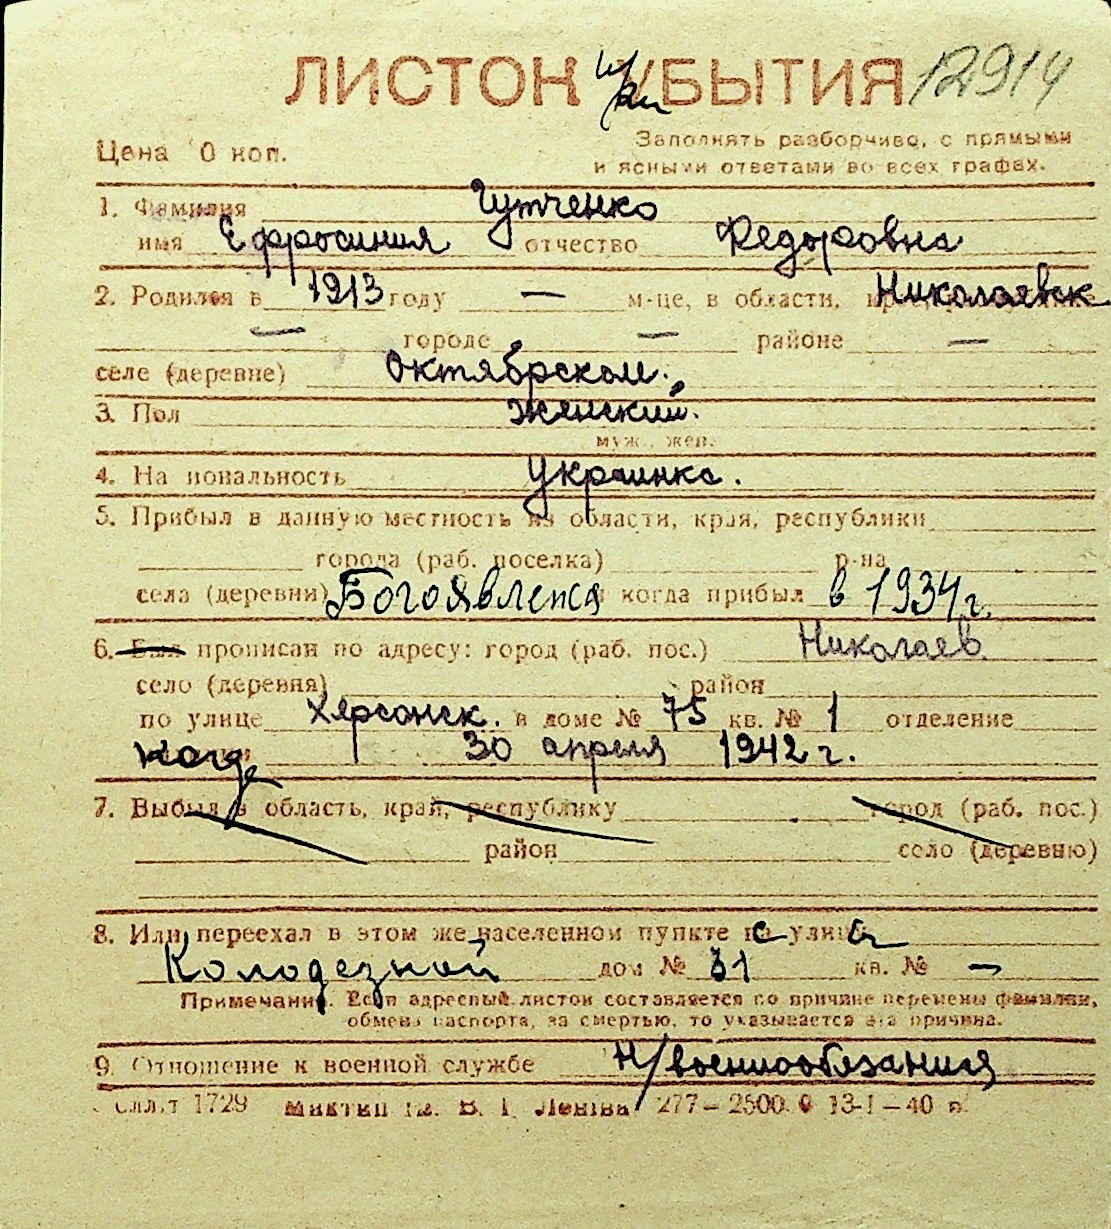 ЛИСТОК УБЫТИЯ 12914
Цена 0 коп.
Заполнять разборчиво, с прямыми
и ясными ответами во всех графах.
1. Фамилия Гутченко
имя Ефросиния отчество Федоровна
2. Родился в 1913 году — м-це, в области, Николаевск
— городе — районе —
селе (деревне) Октябрьском.
3. Пол Женский.
муж., жен.
4. Национальность Украинка.
5. Прибыл в данную местность из области, края, республики
города (раб. поселка) р-на
села (деревни) Богоявленск когда прибыл в 1934 г.
6. Был прописан по адресу: город (раб. пос.) Николаев
село (деревня) район
по улице Херсонск. в доме № 75 кв. № 1 отделение
когда 30 апреля 1942 г.
7. Выбыл в область, край, республику город (раб. пос.)
район село (деревню)
8. Или переехал в этом же населенном пункте с улицы
Колодезной дом № 31 кв. № —
Примечание. Если адресный листок составляется по причине перемены фамилии,
обмена паспорта, за смертью, то указывается эта причина.
9. Отношение к военной службе н/военнообязанная
1729 В. І. Леніна 277–2500. 13-I–40 р.